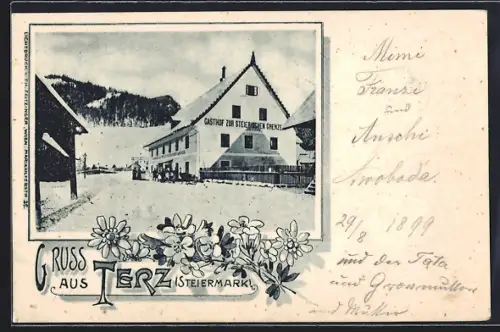 GASTHOF ZUR STEIERISCHEN GRENZE
GRUSS
AUS TERZ (STEIERMARK).
Mimi
Franzi
und
Anschi
Swoboda.
29/8 1899
und der Tata
und Grossmutter
und Mutter